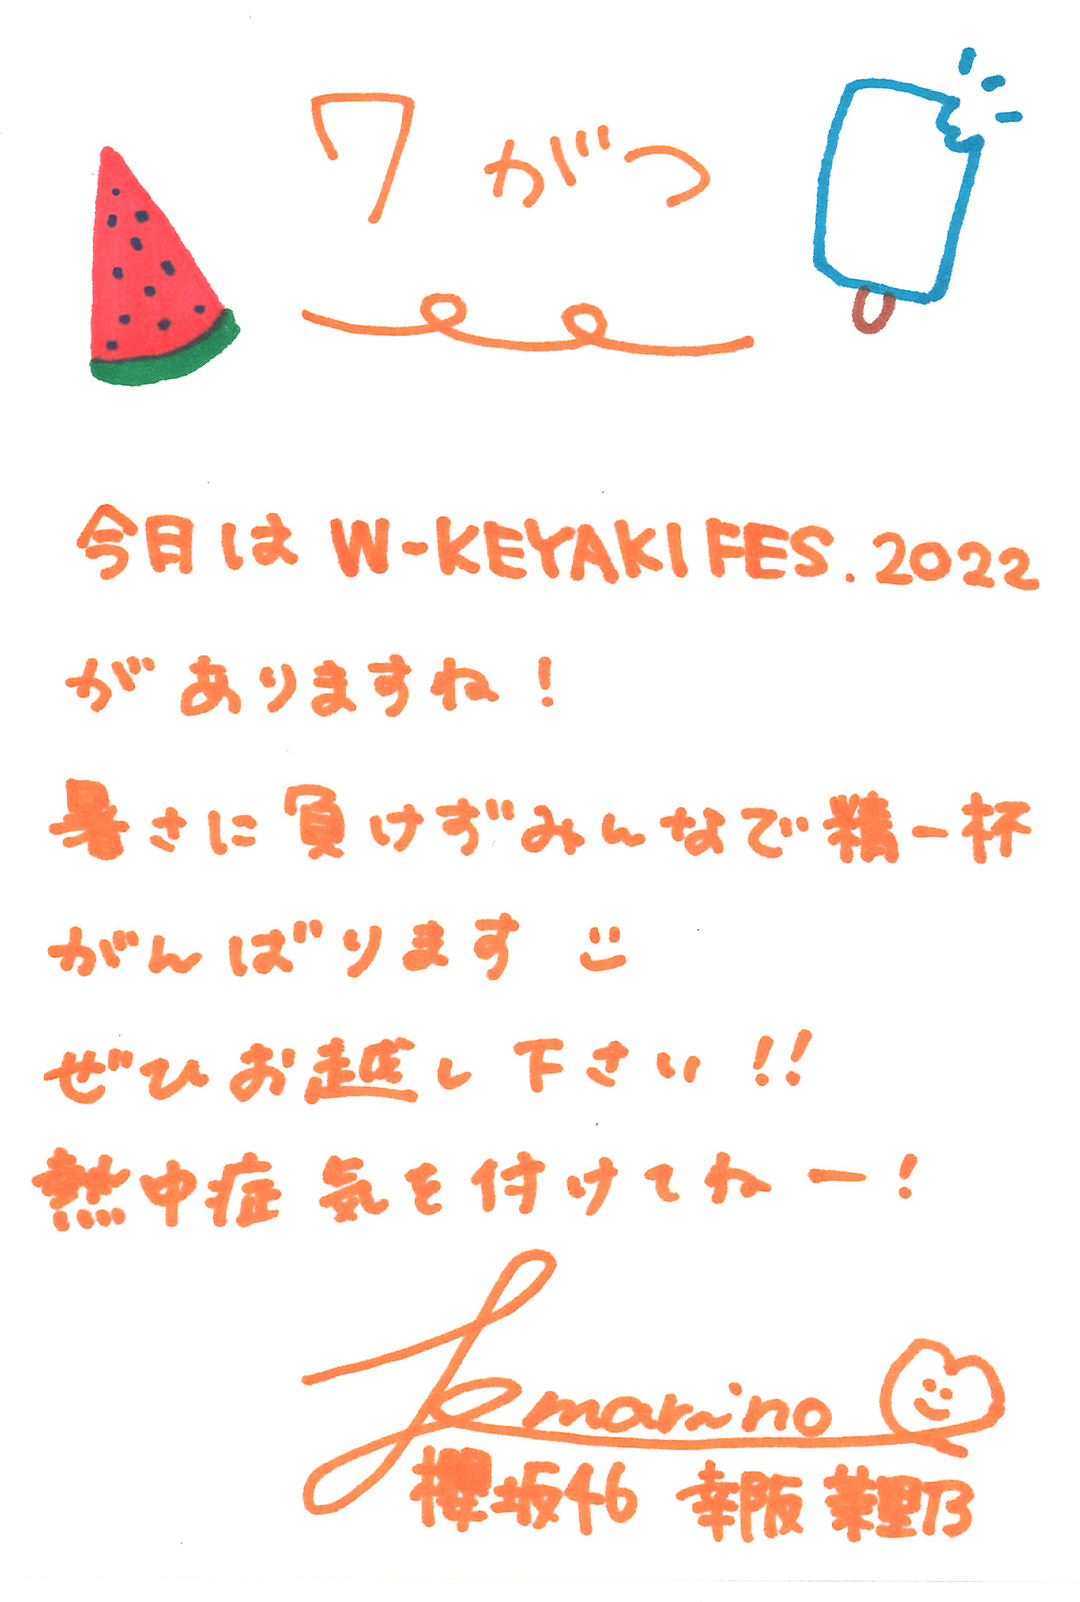 7がつ
今日は W-KEYAKI FES. 2022
がありますね!
暑さに負けずみんなで精一杯
がんばります
ぜひお越し下さい!!
熱中症 気を付けてねー!
marino
櫻坂46 幸阪茉里乃